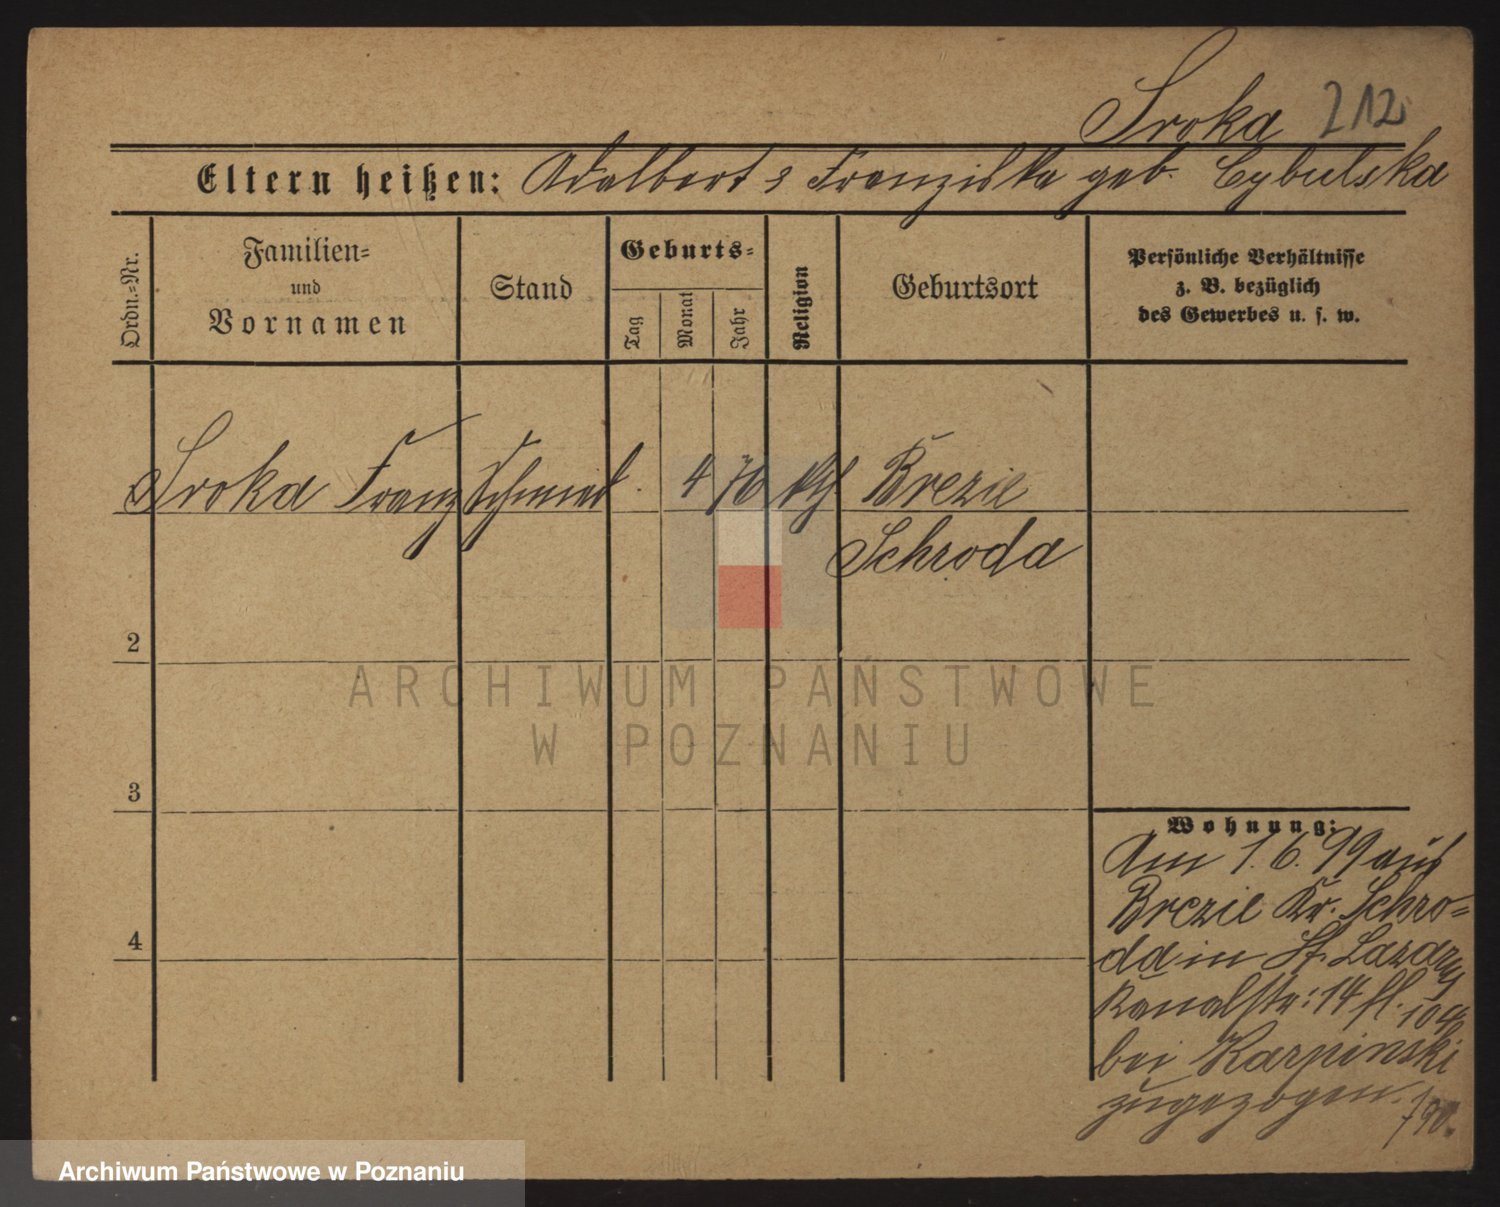 Sroka 212
Eltern heißen: Adalbert & Franziska geb. Cybulska
Ordn.=Nr.
Familien=
und
Vornamen
Stand
Geburts=
Tag
Monat
Jahr
Religion
Geburtsort
Persönliche Verhältnisse
z. B. bezüglich
des Gewerbes u. s. w.
Sroka Franz Schmied 4 76 kth. Brezie
Schroda
2
3
4
Wohnung:
Am 1. 6. 99 aus
Brezie Kr. Schro=
da in St. Lazarus
Kanalstr: 14 fl.
bei Karpinski
zugezogen.
ARCHIWUM PAŃSTWOWE
W POZNANIU
Archiwum Państwowe w Poznaniu